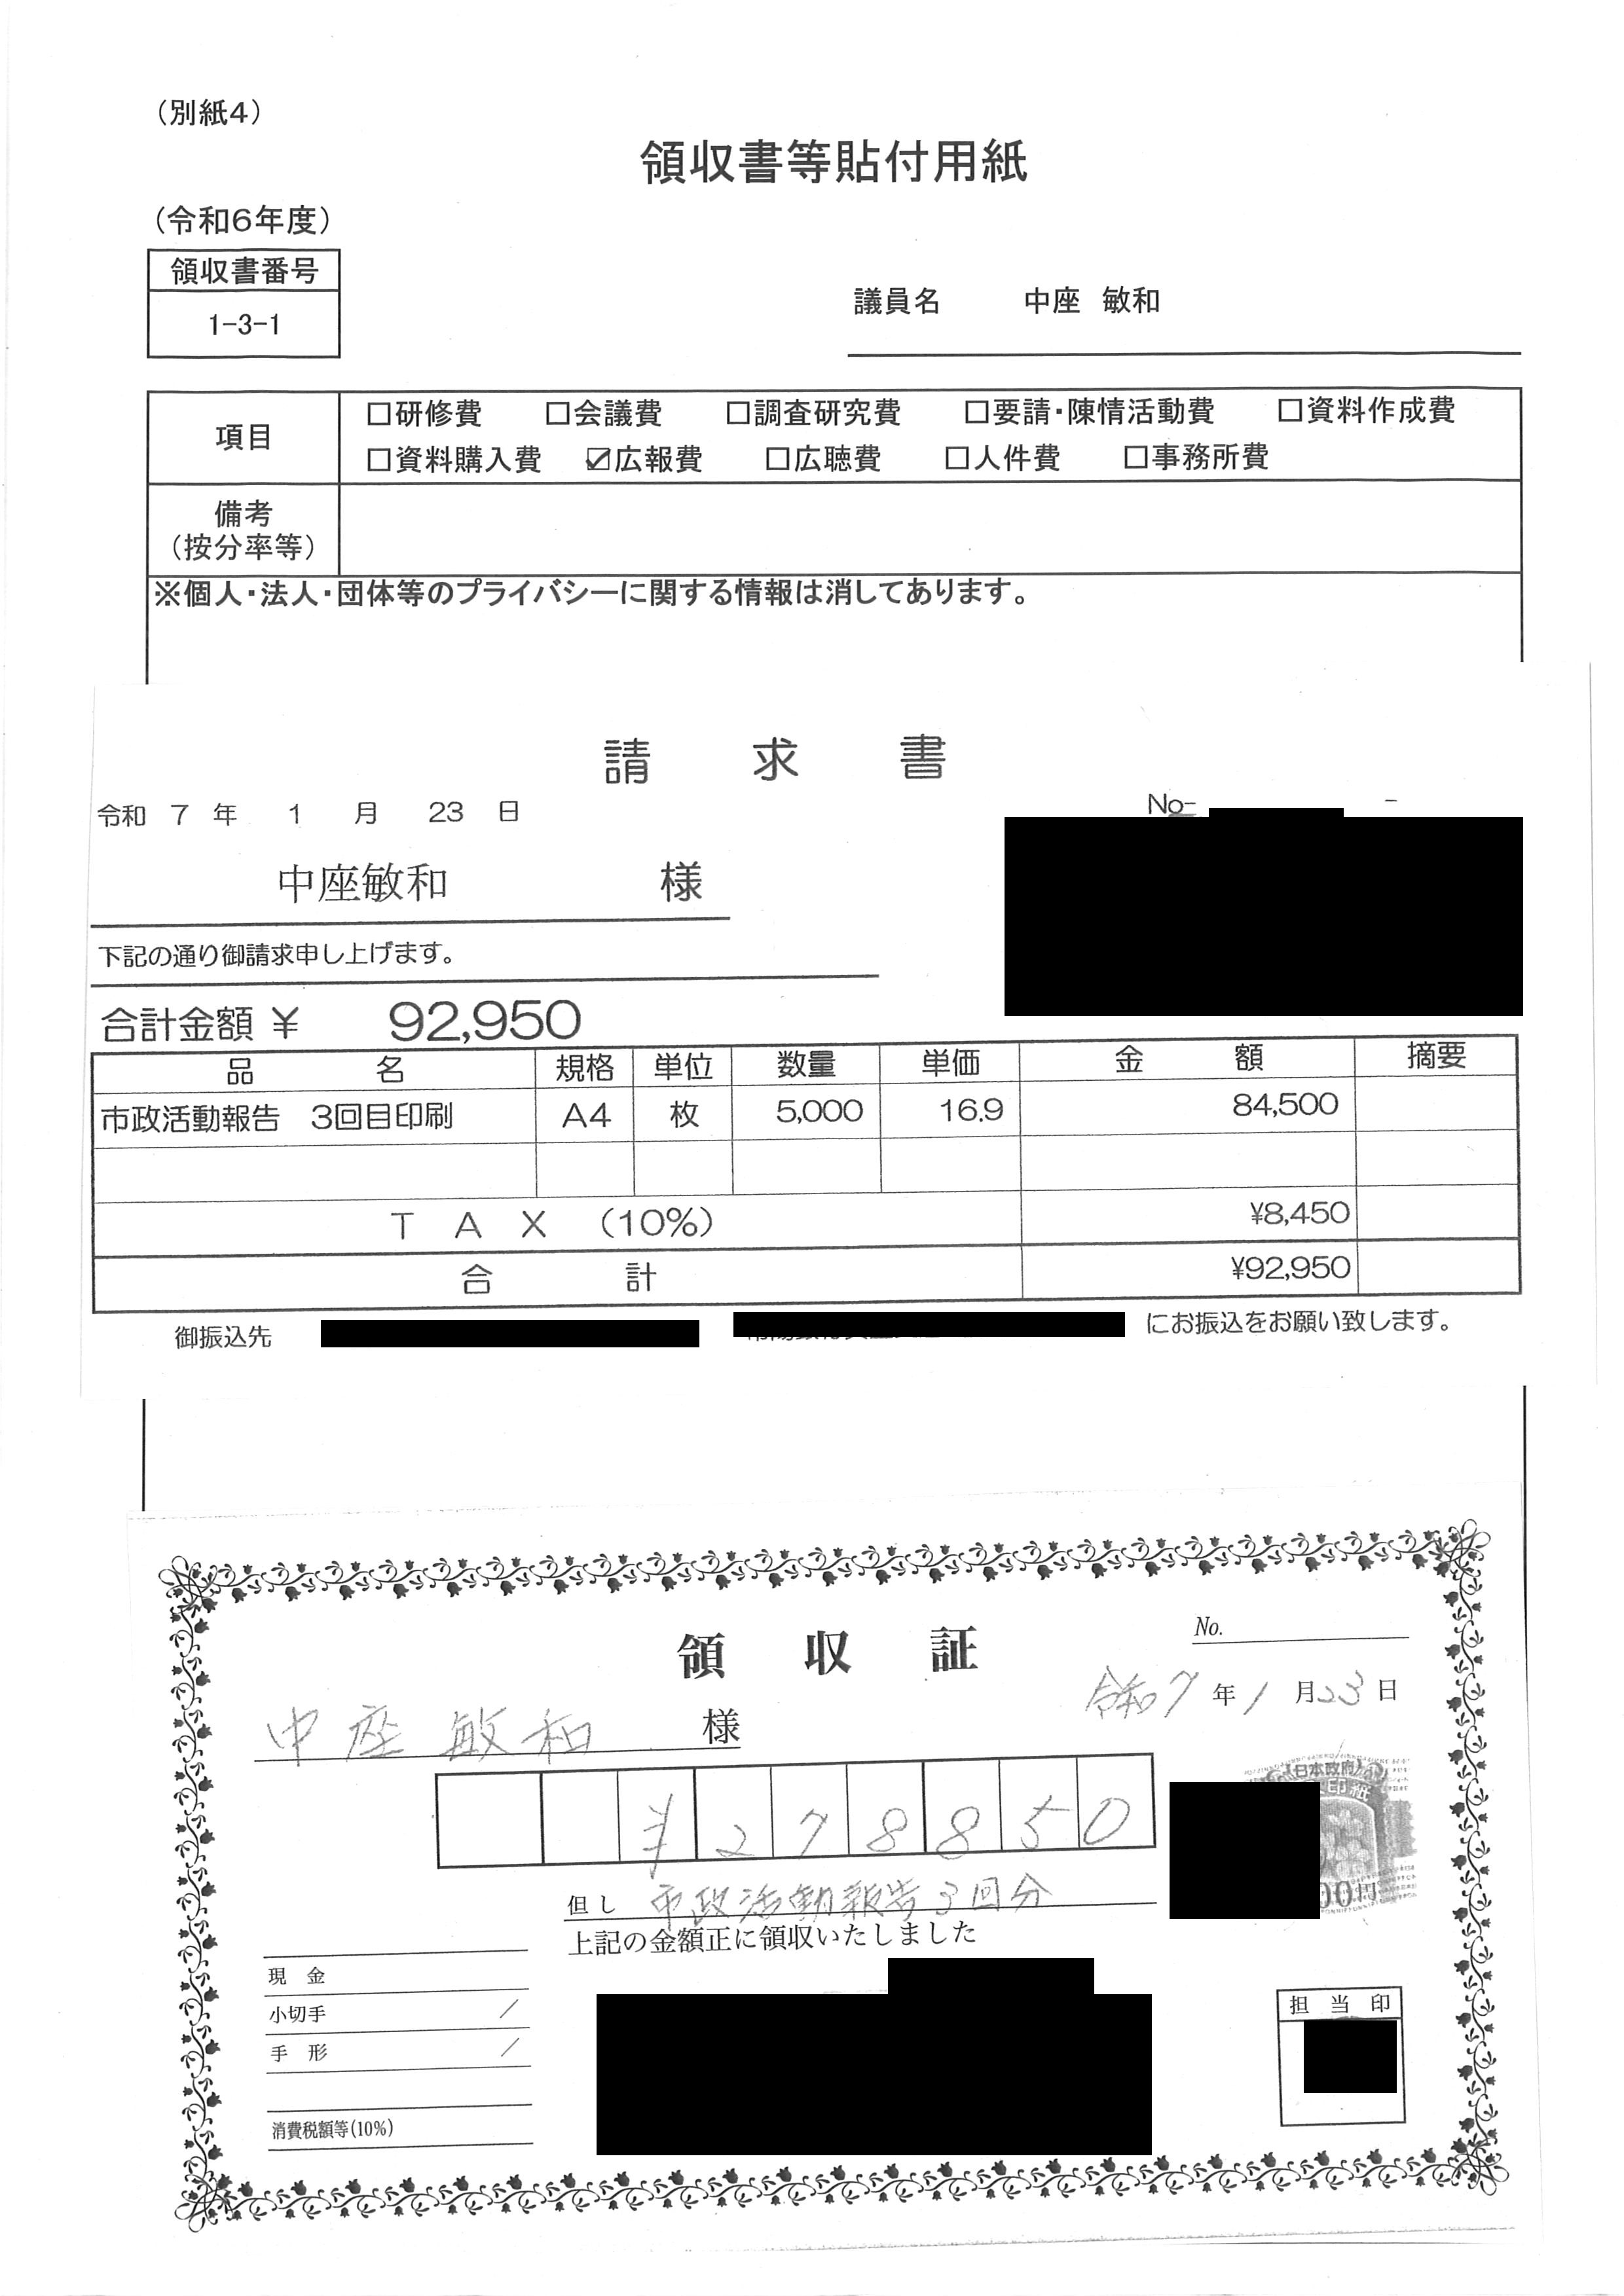 （別紙4）
領収書等貼付用紙
（令和6年度）
領収書番号
1-3-1
議員名 中座 敏和
項目
□研修費 □会議費 □調査研究費 □要請・陳情活動費 □資料作成費
□資料購入費 ☑広報費 □広聴費 □人件費 □事務所費
備考
（按分率等）
※個人・法人・団体等のプライバシーに関する情報は消してあります。
請求書
令和 7 年 1 月 23 日
No-
-
中座敏和 様
下記の通り御請求申し上げます。
合計金額 ¥ 92,950
品名 規格 単位 数量 単価 金額 摘要
市政活動報告 3回目印刷 A4 枚 5,000 16.9 84,500
TAX (10%) ¥8,450
合計 ¥92,950
御振込先 にお振込をお願い致します。
領収証
No.
令和7年1月23日
中座敏和 様
¥278850
但し 市政活動報告3回分
上記の金額正に領収いたしました
日本政府
印紙
00円
現金
小切手 /
手形 /
消費税額等(10%)
担当印